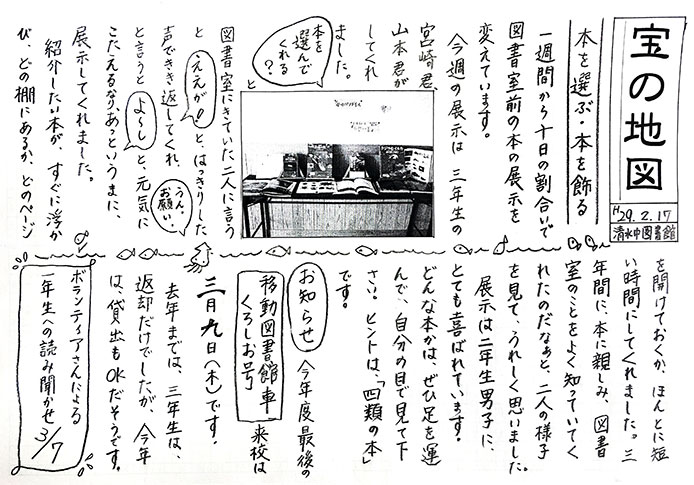 宝の地図
H29.2.17
清水中図書館
本を選ぶ・本を飾る
一週間から十日の割合いで
図書室前の本の展示を
変えています。
今週の展示は三年生の
宮崎君、
山本君が
してくれ
ました。
本を
選んで
くれる
?
と
図書室にきていた二人に言う
と
ええが!
とはっきりした
声できき返してくれ、
うん、
お願い。
と言うと
よ〜し
と、元気に
こたえるなり、あっというまに、
展示してくれました。
紹介したい本が、すぐに浮か
び、どの棚にあるか、どのページ
を開けておくか、ほんとに短
い時間にしてくれました。三
年間に、本に親しみ、図書
室のことをよく知っていてく
れたのだなぁと、二人の様子
を見て、うれしく思いました。
展示は二年生男子に、
とても喜ばれています。
どんな本かは、ぜひ足を運
んで、自分の目で見て下
さい。ヒントは、「四類の本」
です。
お知らせ
今年度最後の
移動図書館車
くろしお号
来校は
三月九日(木)です。
去年までは、三年生は、
返却だけでしたが、今年
は、貸出もOKだそうです。
ボランティアさんによる
一年生への読み聞かせ
3/7